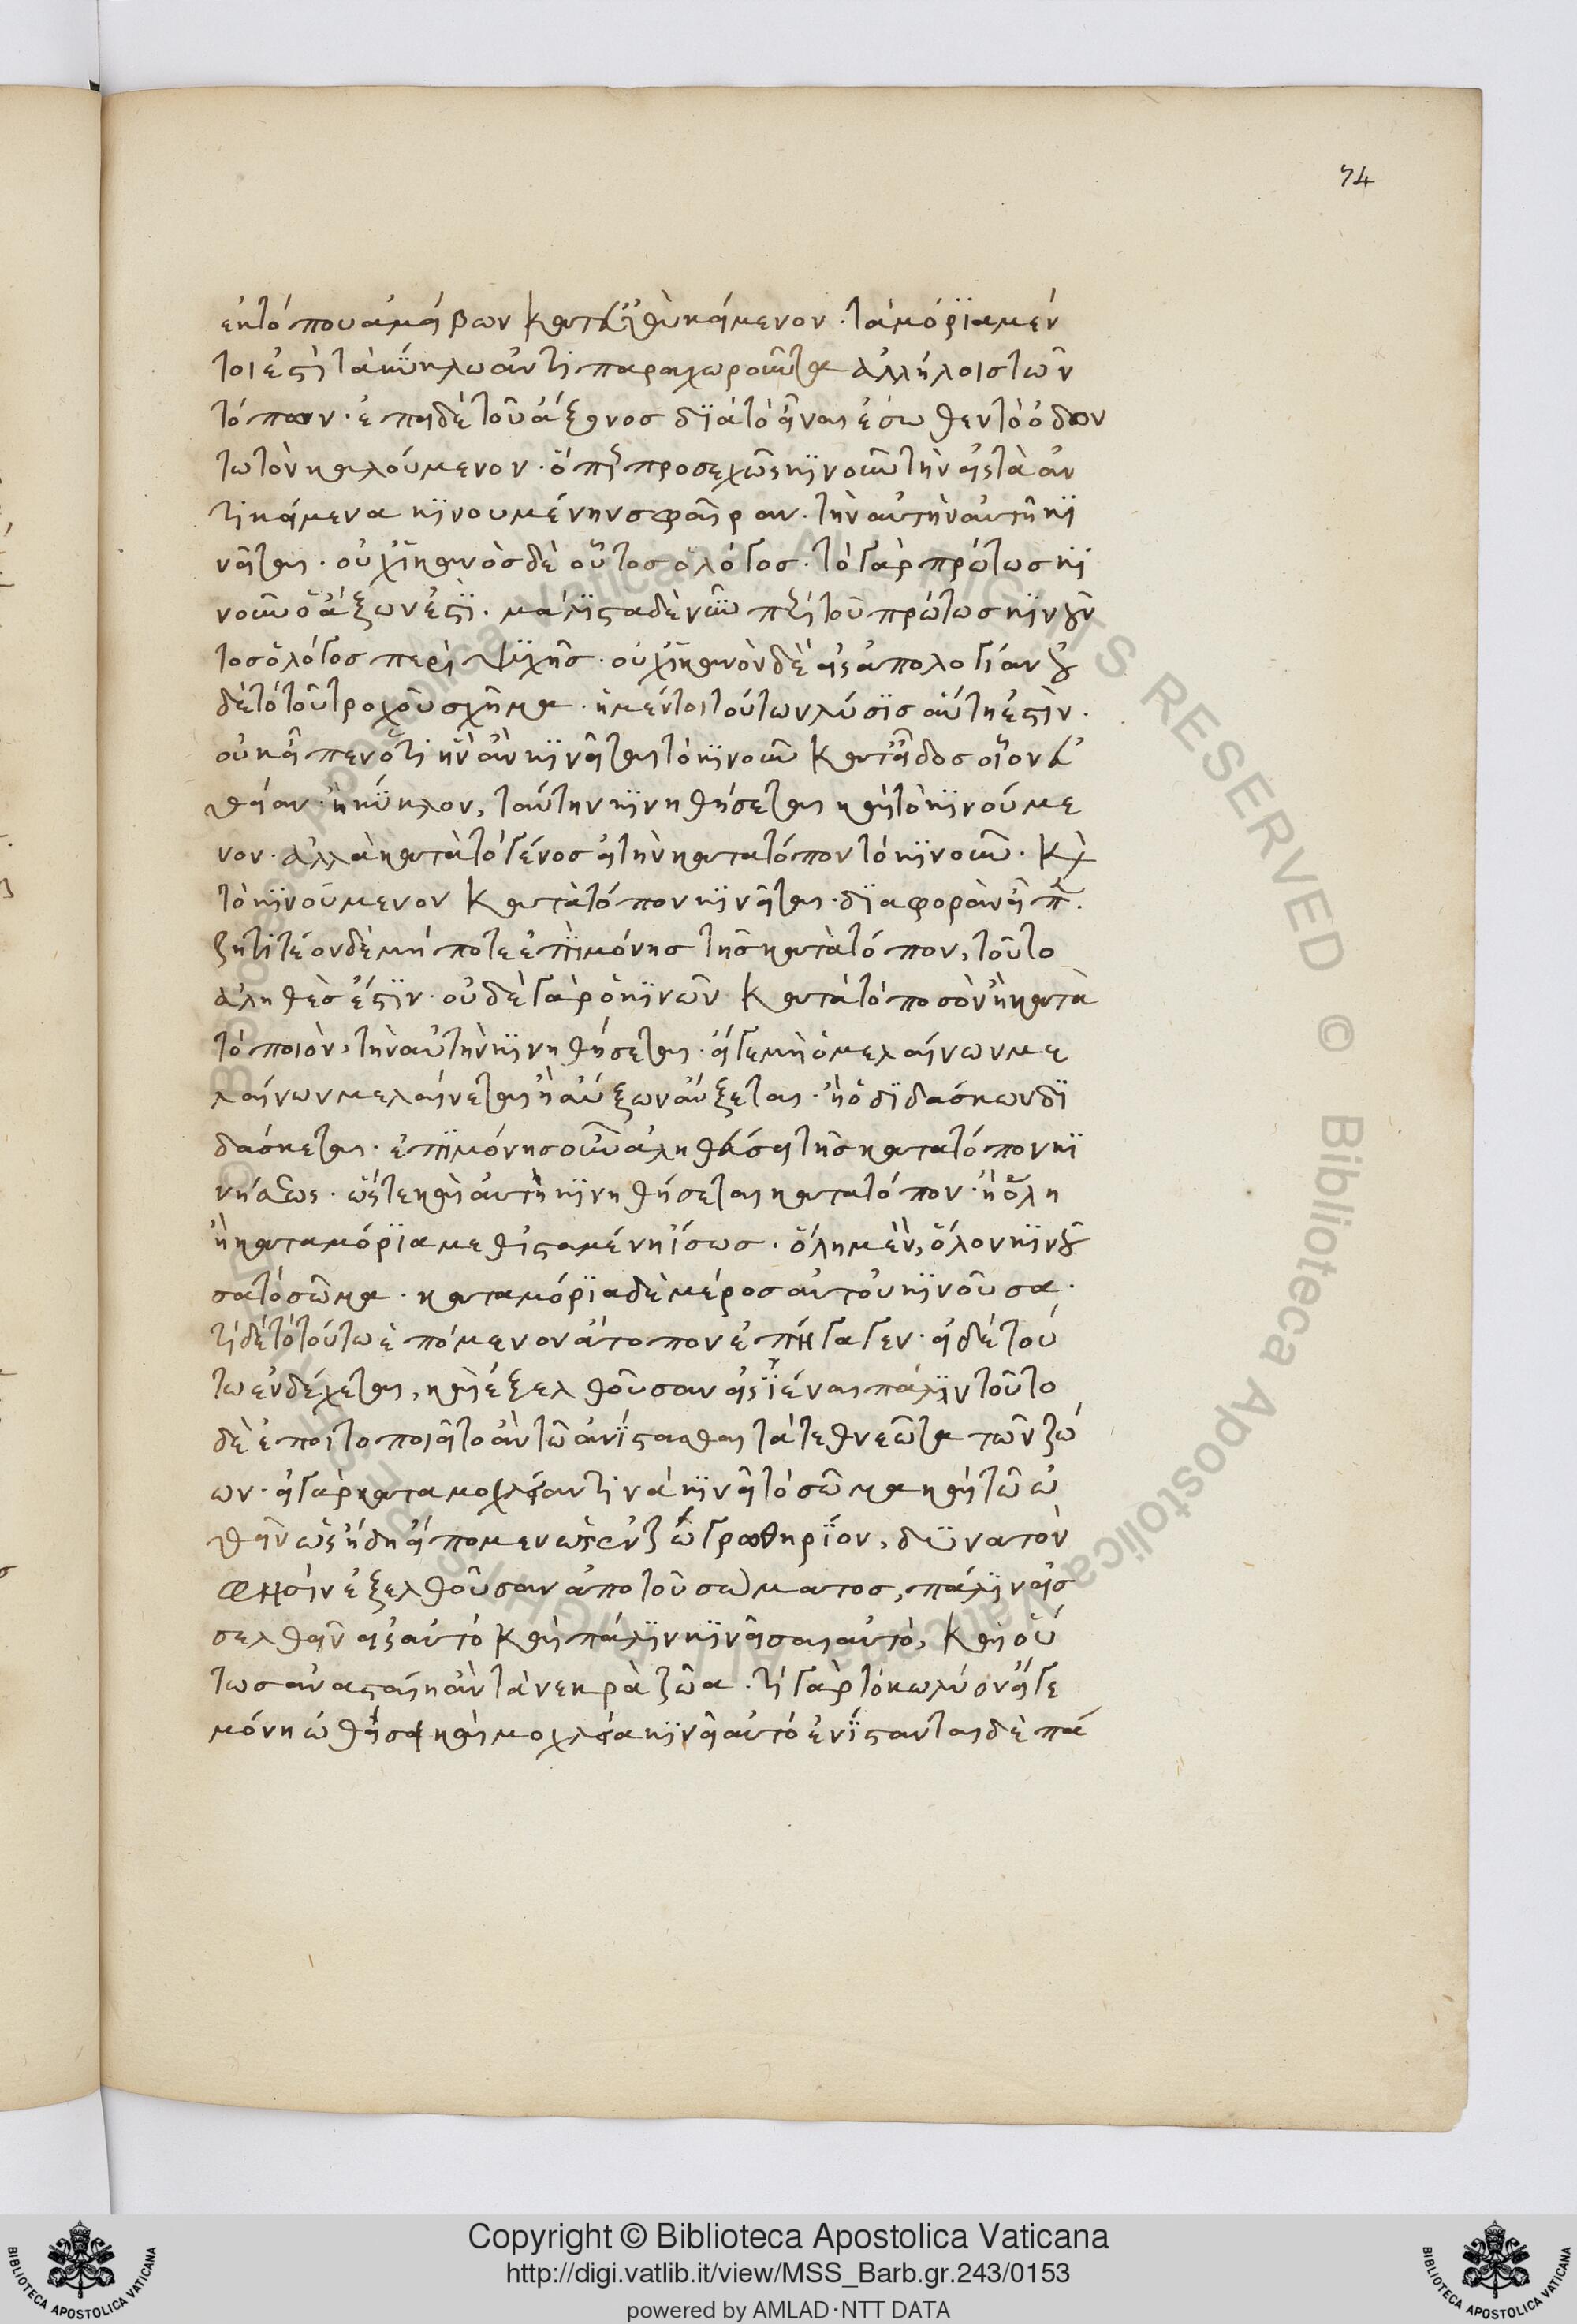 74
ἐκ τόπου ἀμείβων κατ' εὐθὺ κείμενον. τὰ μόρια μέν
τοι ἐστὶ τὰ κύκλω ἀντιπαραχωροῦντα ἀλλήλοις τῶν
τόπων. ἐπεὶ δὲ τοῦ ἄξονος διὰ τὸ εἶναι ἔσωθεν τὸ ὀδον
τωτὸν καλούμενον. ὅπερ προσεχῶς κινοῦν τὴν εἰς τὰ ἀν
τικείμενα κινουμένην σφαῖραν. τὴν αὐτὴν αὐτῆ κι
νεῖται. οὐχ ἱκανὸς δὲ οὗτος ὁ λόγος. τὸ γὰρ πρώτως κι
νοῦν ὁ ἄξων ἐστί. μάλιστα δὲ νῦν περὶ τοῦ πρώτως κινοῦν
τος ὁ λόγος περὶ ψυχῆς. οὐχ ἱκανὸν δὲ εἰς ἀπολογίαν οὐ
δὲ τὸ τοῦ τροχοῦ σχῆμα. ἡ μέντοι τούτων λύσις αὕτη ἐστίν.
οὐκ εἶπεν ὅτι ἣν ἂν κινεῖται τὸ κινοῦν κατ' εἶδος οἷον εὐ
θεῖαν ἢ κύκλον, ταύτην κινηθήσεται καὶ τὸ κινούμε
νον. ἀλλὰ κατὰ τὸ γένος εἰ τὴν κατὰ τόπον τὸ κινοῦν. καὶ
τὸ κινούμενον κατὰ τόπον κινεῖται. διαφορὰν εἶπε.
ζητιτέον δὲ μήποτε ἐπὶ μόνης τῆς κατὰ τόπον, τοῦτο
ἀληθὲς ἐστίν. οὐδὲ γὰρ ὁ κινῶν κατὰ τὸ ποσὸν ἢ κατὰ
τὸ ποιὸν, τὴν αὐτὴν κινηθήσεται. εἴγε μὴ ὁ μελαίνων με
λαίνων μελαίνεται ἢ αὔξων αὔξεται. ἢ ὁ διδάσκων δι
δάσκεται. ἐπὶ μόνης οὖν ἀληθεύσει τῆς κατὰ τόπον κι
νήσεως. ὥστε καὶ αὐτὴ κινηθήσεται κατὰ τόπον. ἢ ὅλη
ἢ κατὰ μόρια μεθισταμένη ἴσως. ὅλη μὲν, ὅλον κινοῦ
σα τὸ σῶμα. κατὰ μόρια δὲ μέρος αὐτοῦ κινοῦσα.
τί δὲ τὸ τούτω ἑπόμενον ἄτοπον ἐπήγαγεν. εἰ δὲ τού
τω ἐνδέχεται, καὶ ἐξελθοῦσαν εἰσϊέναι πάλιν τοῦτο
δὲ ἔποιτο ποιεῖτο ἂν τῶ ἀνίστασθαι τὰ τεθνεῶτα τῶν ζώ
ων. εἰ γὰρ κατὰ μοχλείαν τινὰ κινεῖ τὸ σῶμα καὶ τῶ ὠ
θεῖν ὡς ἤδη εἴπομεν ὡς ἐν ζωγροθηρίον, δυνατὸν
φησὶν ἐξελθοῦσαν ἀπὸ τοῦ σώματος, πάλιν εἰσ
σελθεῖν εἰς αὐτὸ καὶ πάλιν κινεῖσαι αὐτό, καὶ οὕ
τως ἀνασταίη ἂν τὰ νεκρὰ ζῶα. τί γὰρ τὸ κωλύον εἴγε
μόνη ὠθήσει καὶ μοχλεία κινεῖ αὐτὸ ἐνίστανται δὲ πά
Copyright © Biblioteca Apostolica Vaticana
http://digi.vatlib.it/view/MSS_Barb.gr.243/0153
powered by AMLAD·NTT DATA